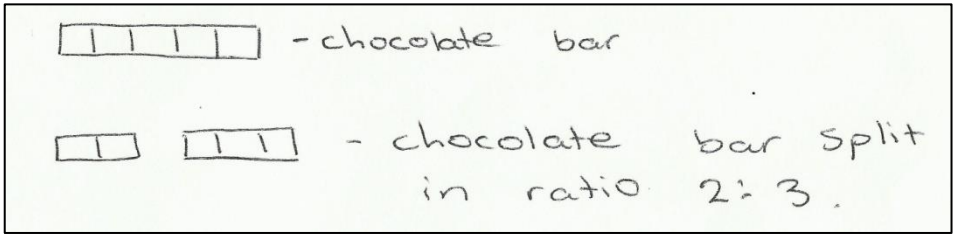 - chocolate bar
- chocolate bar split
in ratio 2:3.